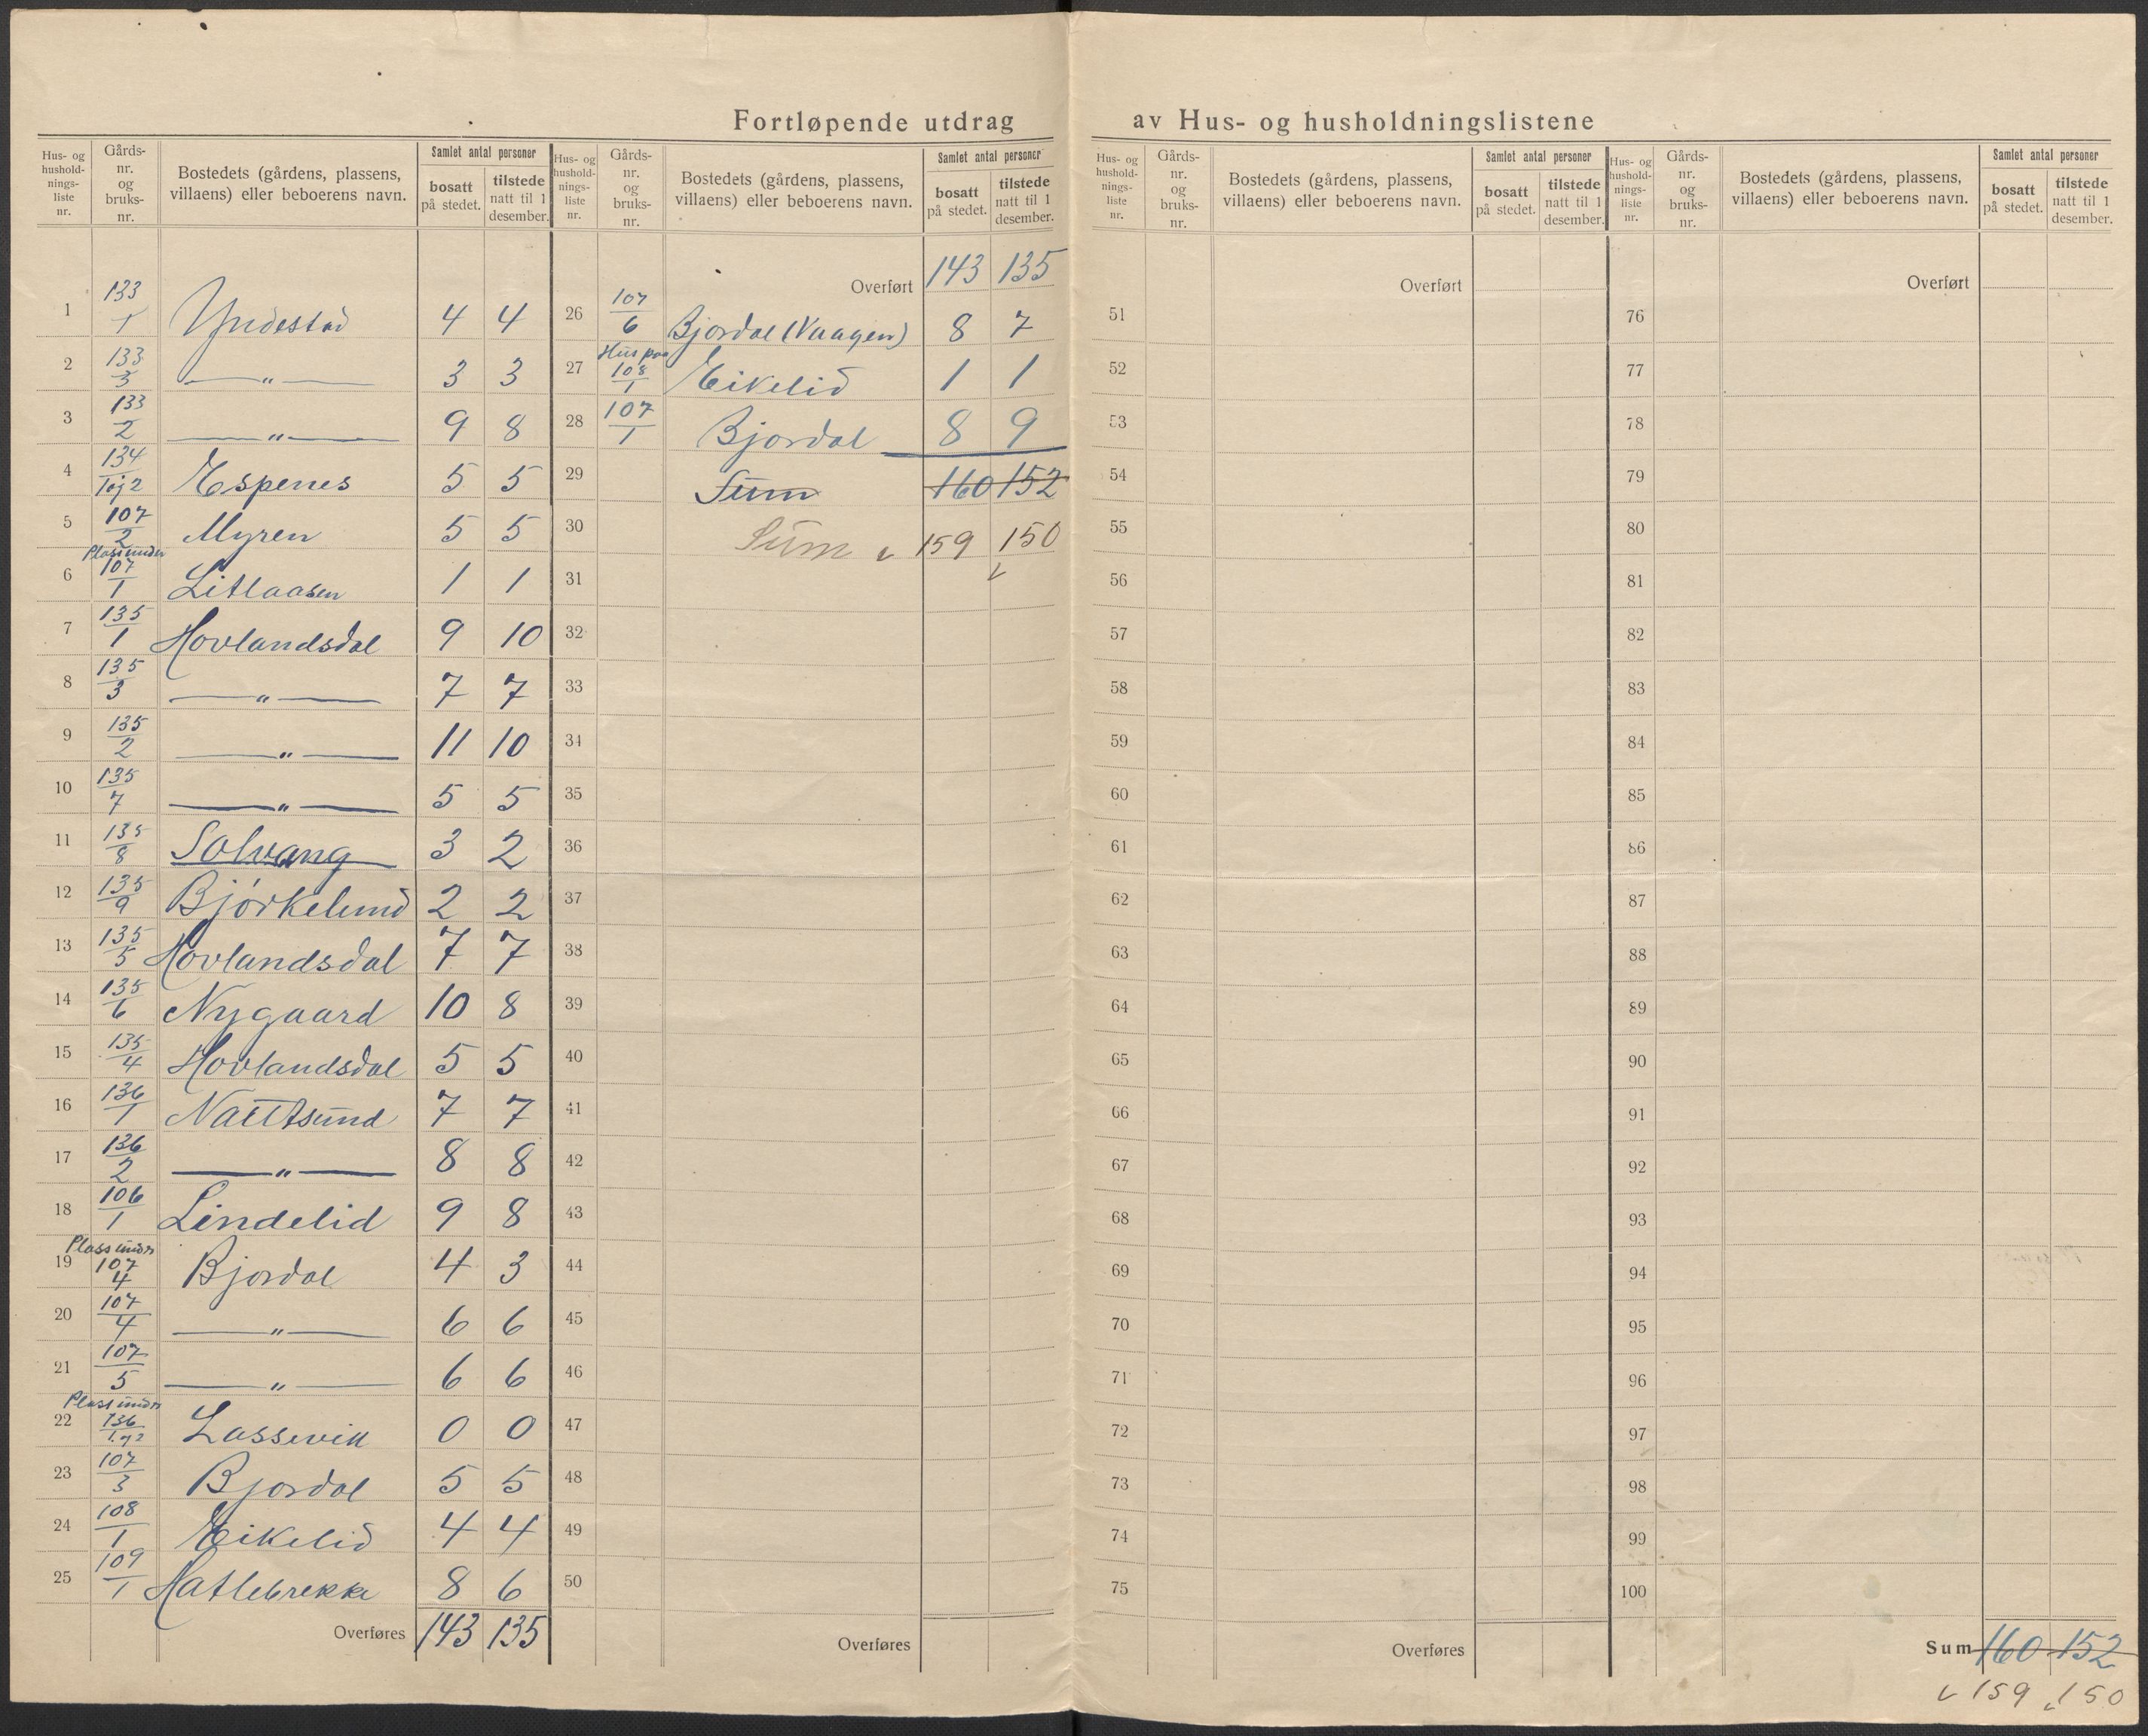 Fortløpende utdrag av Hus- og husholdningslistene
Hus- og hushold- nings- liste nr. | Gårds- nr. og bruks- nr. | Bostedets (gårdens, plassens, villaens) eller beboerens navn. | Samlet antal personer bosatt på stedet. | tilstede natt til 1 desember.
1 133/1 Yndestad 4 4
2 133/3 —〃— 3 3
3 133/2 —〃— 9 8
4 134/1 og 2 Espenes 5 5
5 107/2 Myren 5 5
6 Plass under 107/1 Litlaasen 1 1
7 135/1 Hovlandsdal 9 10
8 135/3 —〃— 7 7
9 135/2 —〃— 11 10
10 135/7 —〃— 5 5
11 135/8 Solvang 3 2
12 135/9 Bjórkelund 2 2
13 135/5 Hovlandsdal 7 7
14 135/6 Nygaard 10 8
15 135/4 Hovlandsdal 5 5
16 136/1 Nattsund 7 7
17 136/2 —〃— 8 8
18 106/1 Lindelid 9 8
19 Plass under 107/4 Bjordal 4 3
20 107/4 —〃— 6 6
21 107/5 —〃— 6 6
22 Plass under 136/1 og 2 Lassevik 0 0
23 107/3 Bjordal 5 5
24 108/1 Eikelid 4 4
25 109/1 Hatlebrekke 8 6
Overføres 143 135
Hus- og hushold- nings- liste nr. | Gårds- nr. og bruks- nr. | Bostedets (gårdens, plassens, villaens) eller beboerens navn. | Samlet antal personer bosatt på stedet. | tilstede natt til 1 desember.
Overført 143 135
26 107/6 Bjordal (Vaagen) 8 7
27 Hus paa 108/1 Eikelid 1 1
28 107/1 Bjordal 8 9
29 Sum 160 152
30 Sum 159 150
31
32
33
34
35
36
37
38
39
40
41
42
43
44
45
46
47
48
49
50
Overføres
Hus- og hushold- nings- liste nr. | Gårds- nr. og bruks- nr. | Bostedets (gårdens, plassens, villaens) eller beboerens navn. | Samlet antal personer bosatt på stedet. | tilstede natt til 1 desember.
Overført
51
52
53
54
55
56
57
58
59
60
61
62
63
64
65
66
67
68
69
70
71
72
73
74
75
Overføres
Hus- og hushold- nings- liste nr. | Gårds- nr. og bruks- nr. | Bostedets (gårdens, plassens, villaens) eller beboerens navn. | Samlet antal personer bosatt på stedet. | tilstede natt til 1 desember.
Overført
76
77
78
79
80
81
82
83
84
85
86
87
88
89
90
91
92
93
94
95
96
97
98
99
100
Sum 160 152
159 150